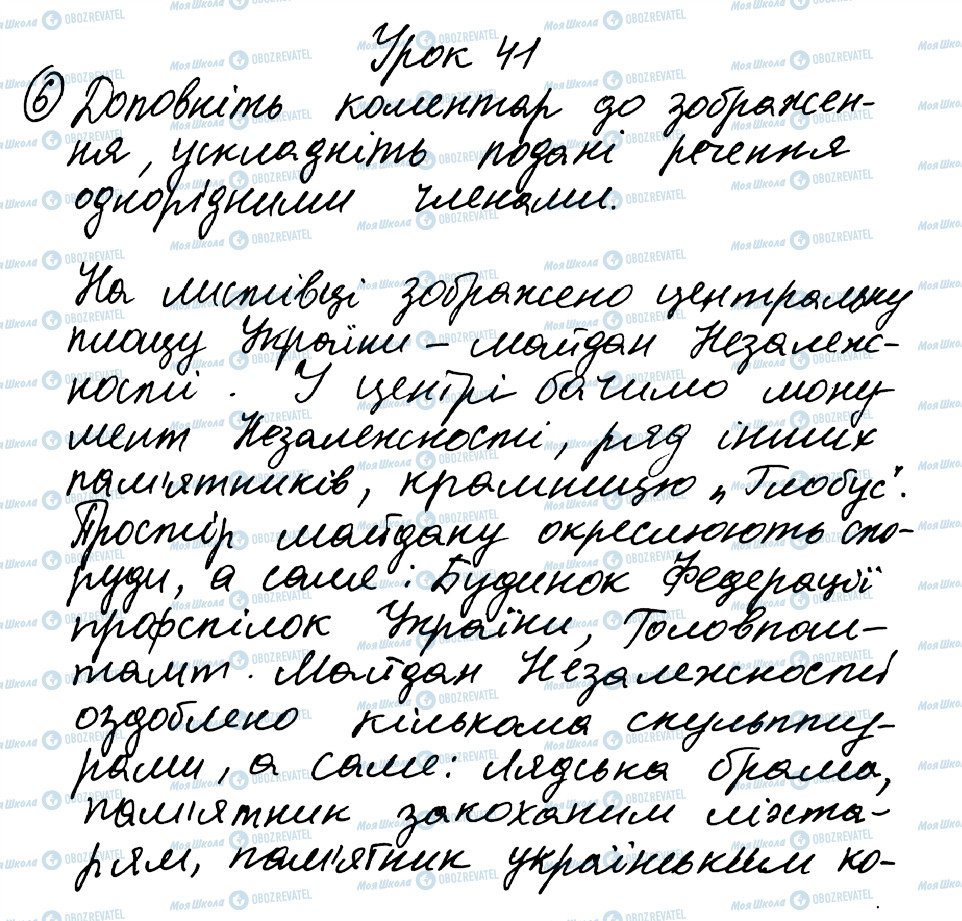 Урок 41
6 Доповніть коментар до зображен-
ня, ускладніть подані речення
однорідними членами.
На листівці зображено центральну
площу України – майдан Незалеж-
ності. У центрі бачимо мону
мент Незалежності, ряд інших
пам'ятників, крамницю „Глобус".
Простір майдану окреслюють спо-
руди, а саме: Будинок Федерації
профспілок України, Головпош-
тамт. Майдан Незалежності
оздоблено кількома скульпту-
рами, а саме: Лядська брама,
пам'ятник закоханим ліхта-
рям, пам'ятник українським ко-